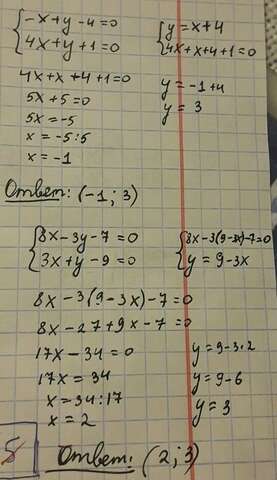 {-x+y-4=0 {y=x+4
{4x+y+1=0 {4x+x+4+1=0
4x+x+4+1=0 y=-1+4
5x+5=0 y=3
5x=-5
x=-5:5
x=-1
Ответ: (-1; 3)
{8x-3y-7=0 {8x-3(9-3x)-7=0
{3x+y-9=0 {y=9-3x
8x-3(9-3x)-7=0
8x-27+9x-7=0
17x-34=0 y=9-3·2
17x=34 y=9-6
x=34:17 y=3
x=2
5 Ответ: (2; 3)